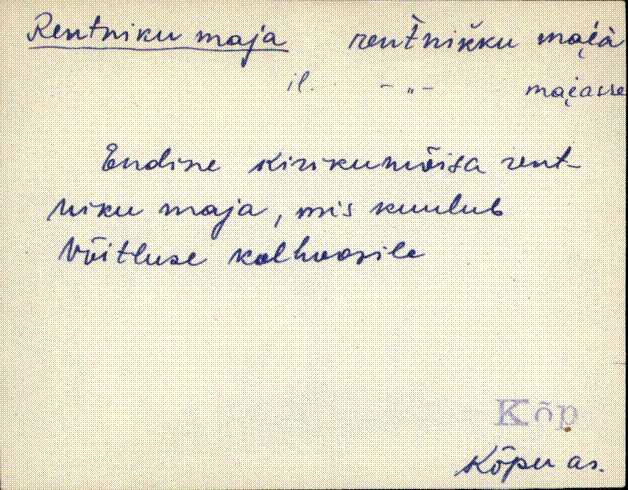 Rentniku maja rent̆nik̆ku mai̯à
il. -"- mai̯asse
Endine kirikumõisa rent-
niku maja, mis kuulub
Võitluse kolhoosile
Kõp
Kõpu as.